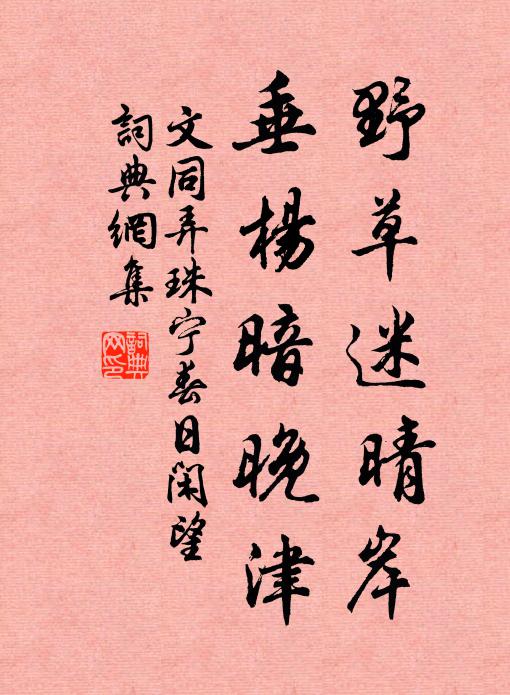 野草迷晴岸
垂楊暗晚津
文同弄珠宁春日闲望
詞典網集
詞典网印